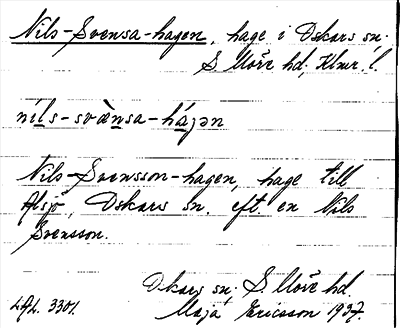 Nils-Svensa-hagen, hage i Oskars sn.
S Möre hd, Klmr. l.
níls-svæ̀nsa-háɡən
Nils-Svensson-hagen, hage till
Alsjö, Oskars sn. eft. en Nils
Svensson.
Oskars sn. S. Möre hd
LAL. 3301. Maja Ericsson 1937.